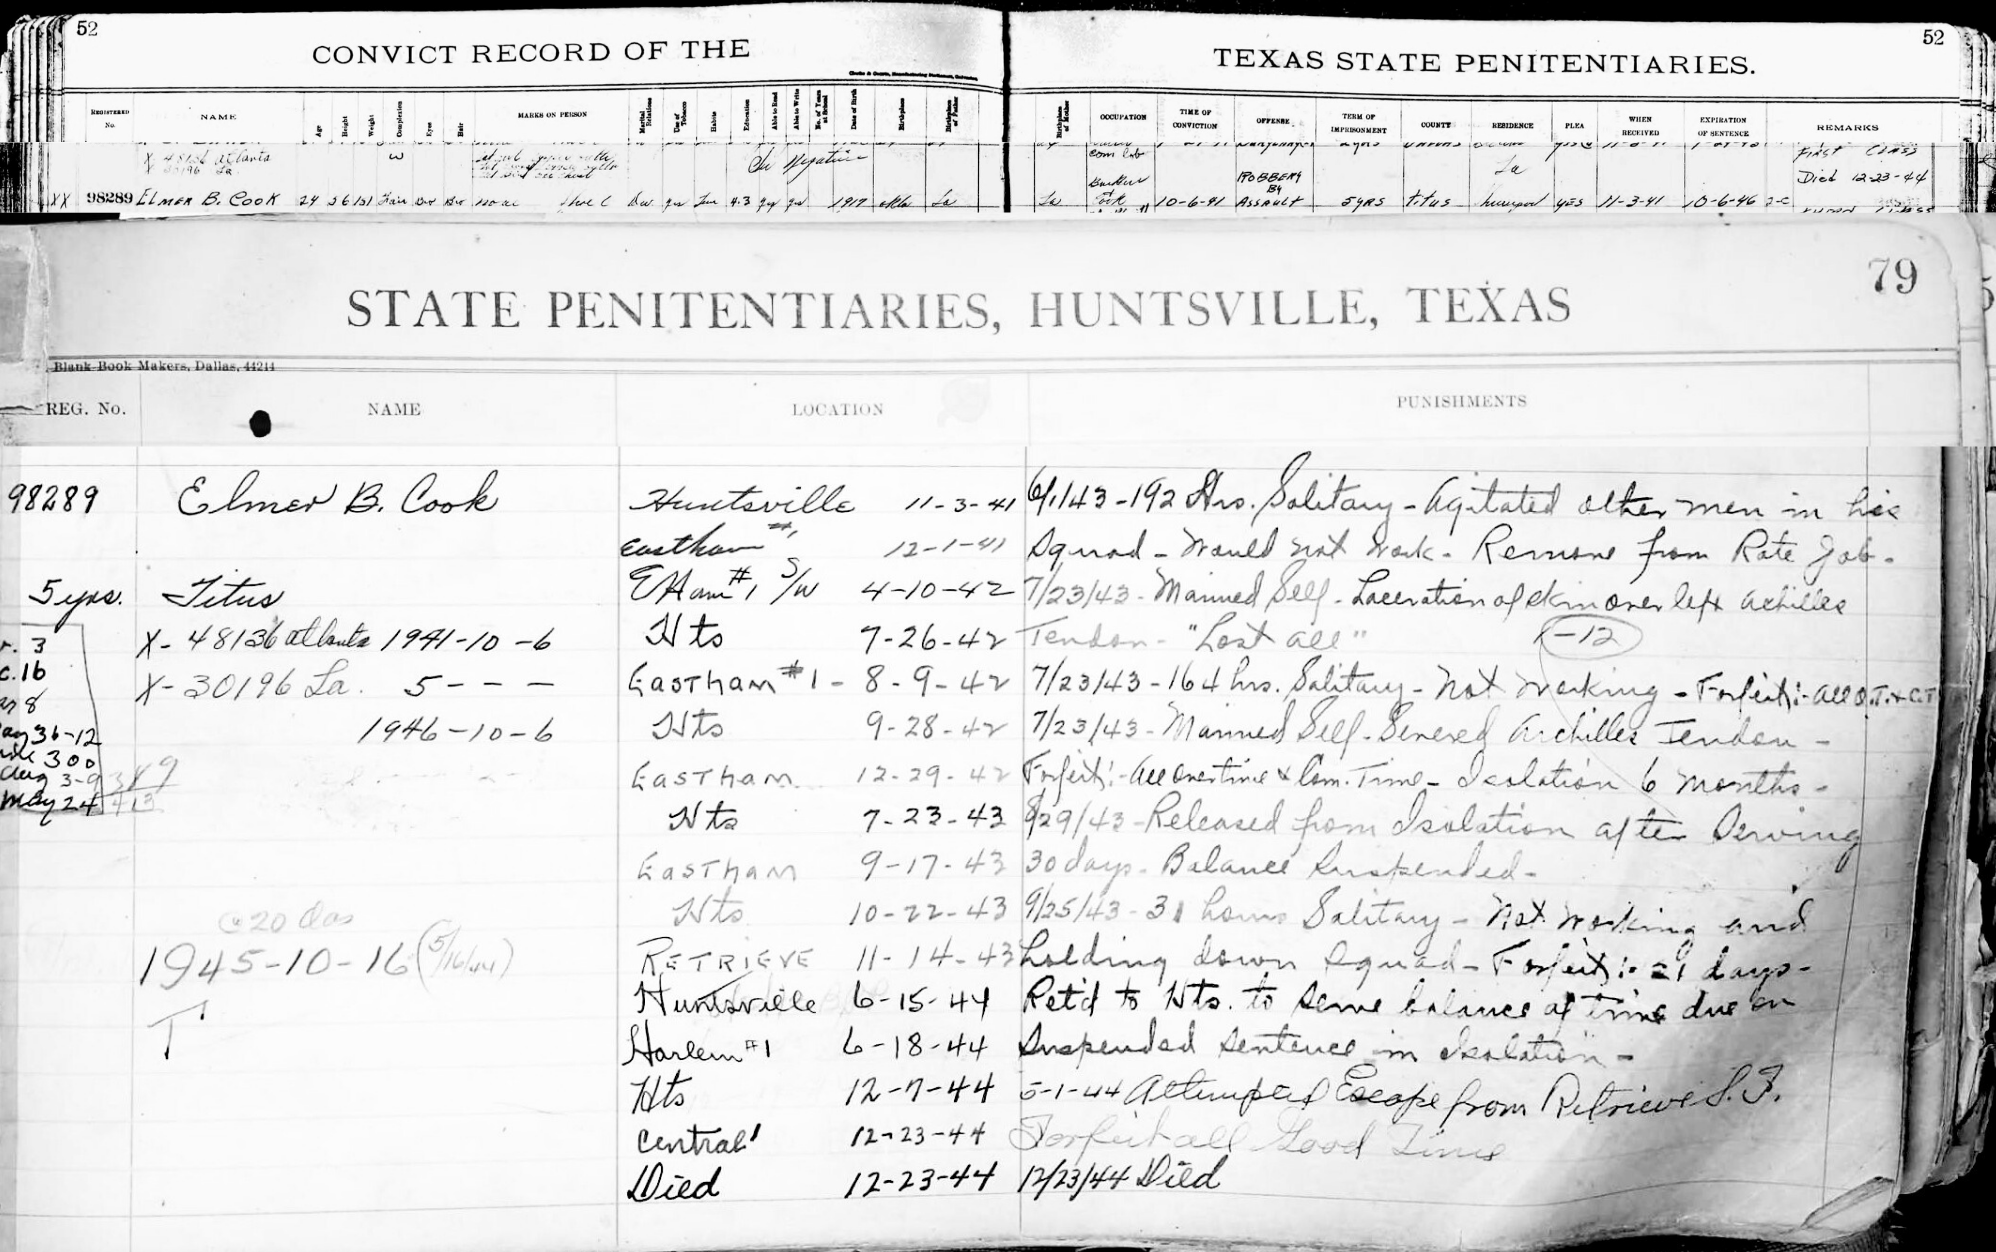 52
52
CONVICT RECORD OF THE
TEXAS STATE PENITENTIARIES.
REGISTERED No. NAME Age Height Weight Complexion Eyes Hair MARKS ON PERSON Marital Relations Use of Tobacco Habits Education Able to Read Able to Write No. of Years at School Date of Birth Birthplace Birthplace of Father Birthplace of Mother OCCUPATION TIME OF CONVICTION OFFENSE TERM OF IMPRISONMENT COUNTY RESIDENCE PLEA WHEN RECEIVED EXPIRATION OF SENTENCE REMARKS
X 48136 Atlanta W Negative Com Lab FIRST CLASS
X 30196 La. La Died 12-23-44
XX 98289 ELMER B. COOK 24 5 6 151 Fair La La Cook 10-6-41 ROBBERY BY ASSAULT 5 yrs Titus yes 11-3-41 10-6-46
79
STATE PENITENTIARIES, HUNTSVILLE, TEXAS
Blank-Book Makers, Dallas, 44214
REG. No. NAME LOCATION PUNISHMENTS
98289 Elmer B. Cook Huntsville 11-3-41 6/1/43-192 Hrs. Solitary - Agitated other men in his
Eastham #1 12-1-41 Squad - Would not work - Remove from Rate Job -
5 yrs. Titus E Ham #1 S/W 4-10-42 7/23/43 - Maimed Self - Laceration of skin over left Achilles
X- 48136 Atlanta 1941-10-6 Hts 7-26-42 Tendon - "Lost all" -12
X- 30196 La. 5 - - - Eastham #1 - 8-9-42 7/23/43 - 164 hrs. Solitary - Not working - Forfeit:- all O.T. & C.T
1946-10-6 Hts 9-28-42 7/23/43 - Maimed Self - Severed Achilles Tendon -
Eastham 12-29-42 Forfeit:- All overtime & Com. Time - Isolation 6 months -
May 24 Hts 7-23-43 8/29/43 - Released from Isolation after Serving
Eastham 9-17-43 30 days - Balance Suspended -
Hts 10-22-43 9/25/43 - 31 hours Solitary - Not working and
1945-10-16 (5/16/44) RETRIEVE 11-14-43 holding down squad - Forfeit:- 21 days -
T Huntsville 6-15-44 Ret'd to Hts. to serve balance of time due on
Harlem #1 6-18-44 Suspended sentence in Isolation -
Hts 12-7-44 5-1-44 Attempted Escape from Retrieve S. F.
Central 1 12-23-44 Forfeit all Good Time
Died 12-23-44 12/23/44 Died